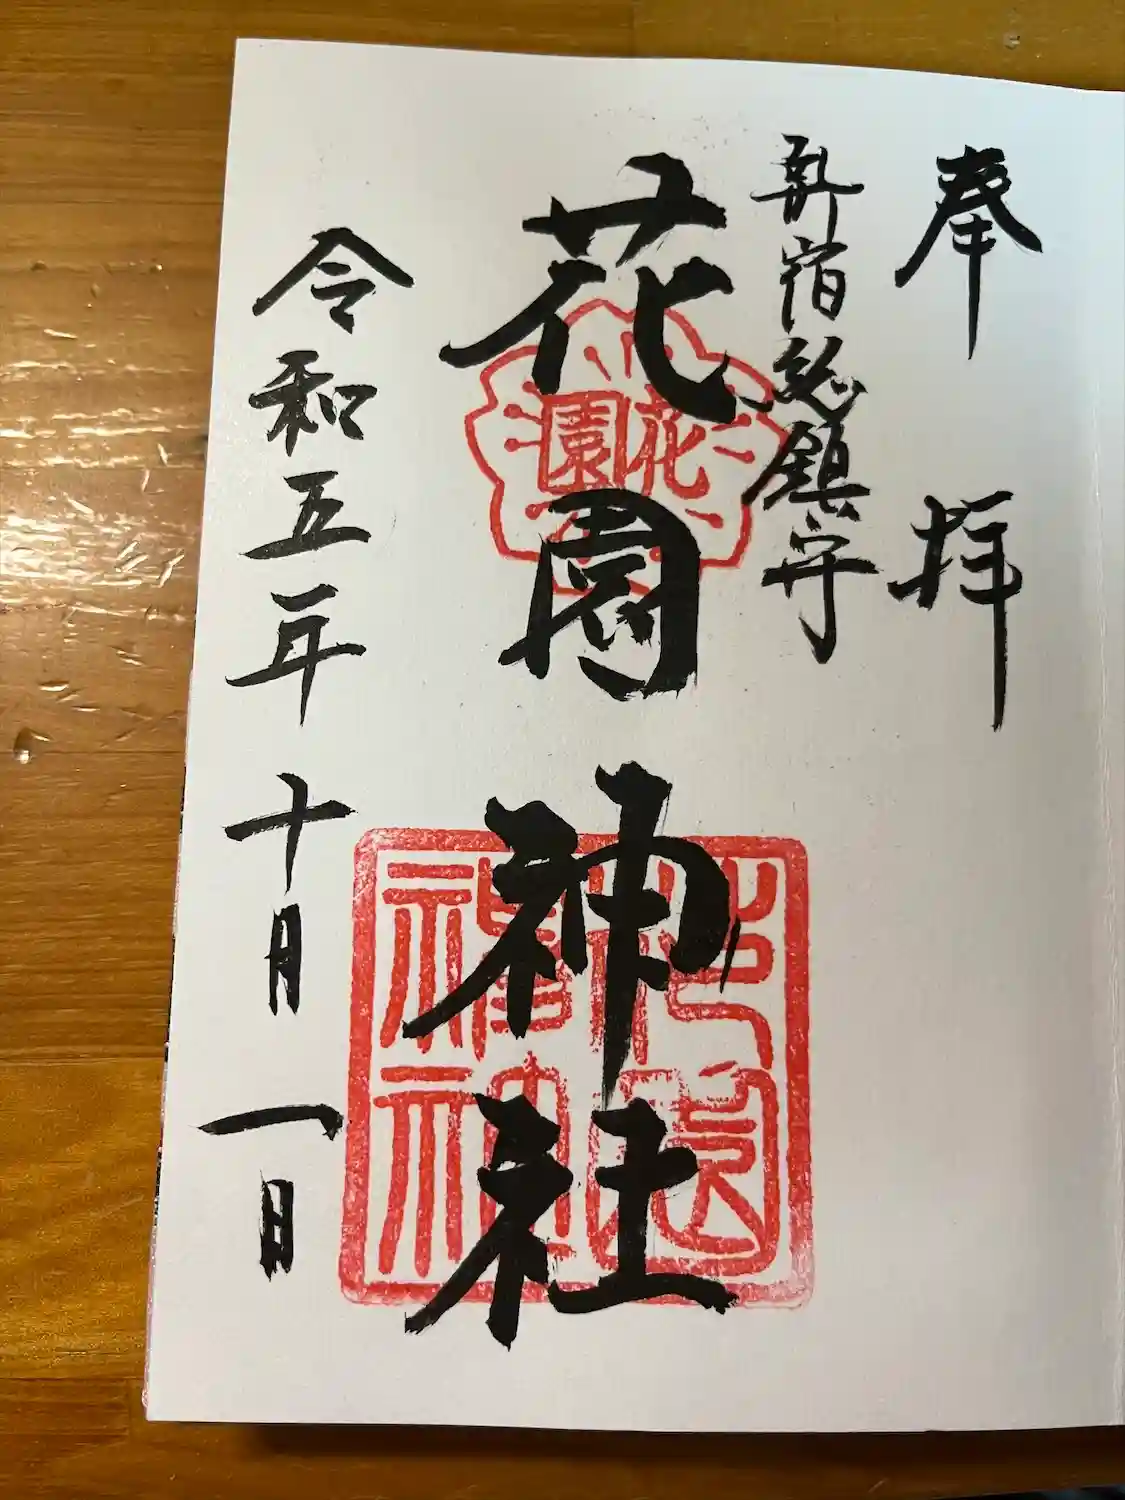 奉拝
新宿総鎮守
花園神社
花園
花園神社
令和五年十月一日